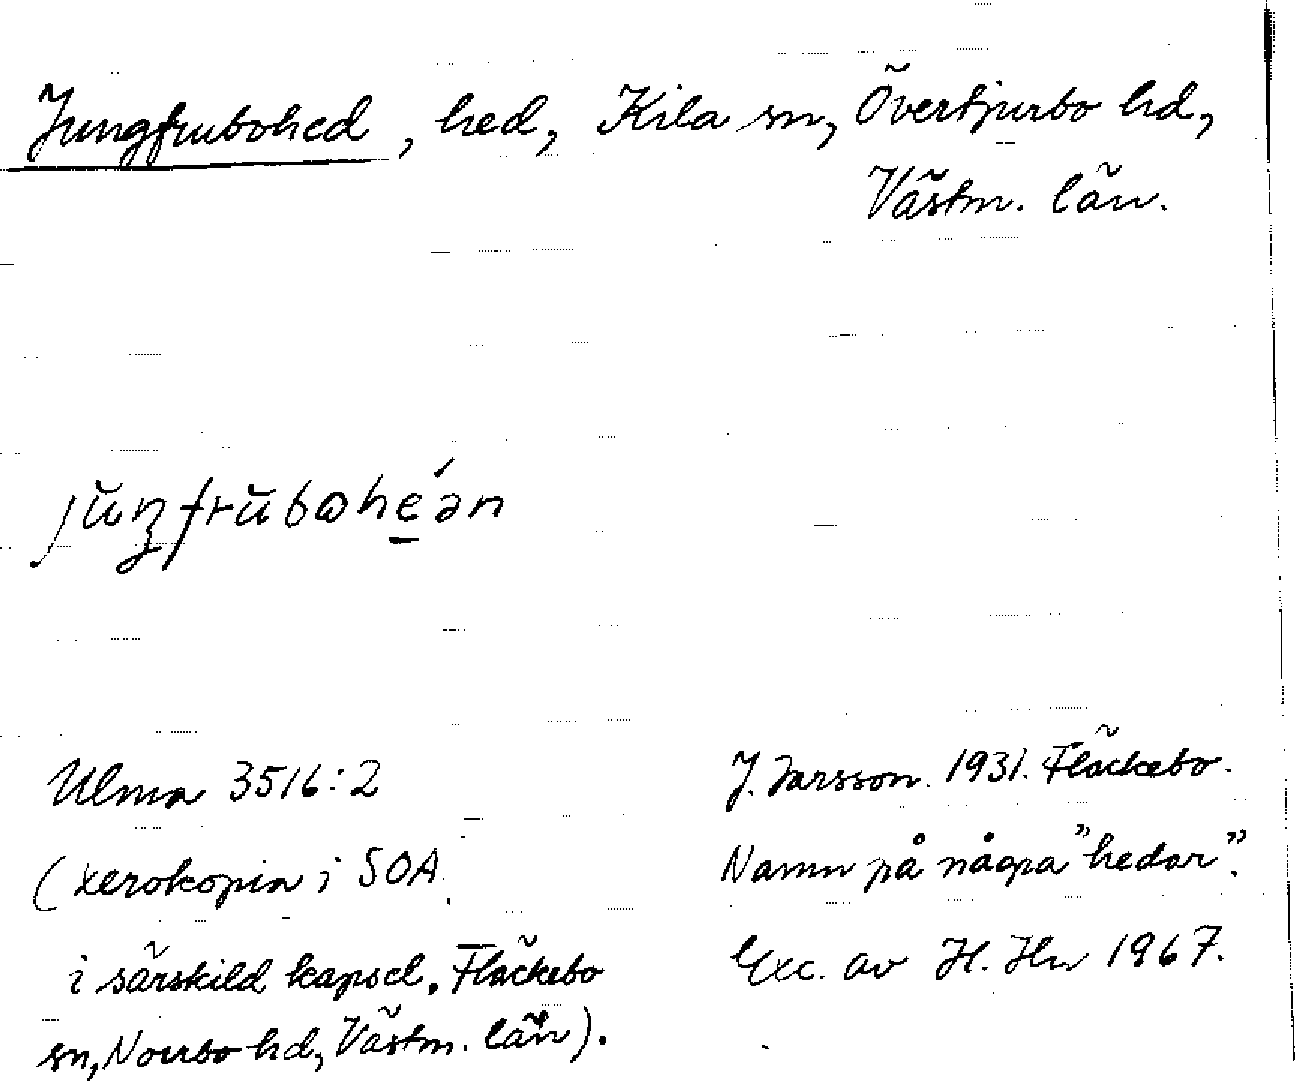 Jungfrubohed, hed, Kila sn, Övertjurbo hd,
Västm. län.
jŭŋfrŭbωhe̠´ən
Ulma 3516:2
(xerokopia i SOA
i särskild kapsel. Fläckebo
sn, Norrbo hd, Västm. län).
J. Jansson. 1931. Fläckebo.
Namn på några "hedar".
Exc. av H. Hn 1967.